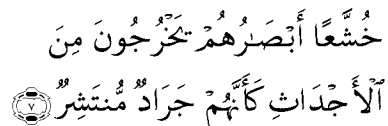 خُشَّعًا أَبْصَٰرُهُمْ يَخْرُجُونَ مِنَ
ٱلْأَجْدَاثِ كَأَنَّهُمْ جَرَادٌ مُّنتَشِرٌ ۝٧